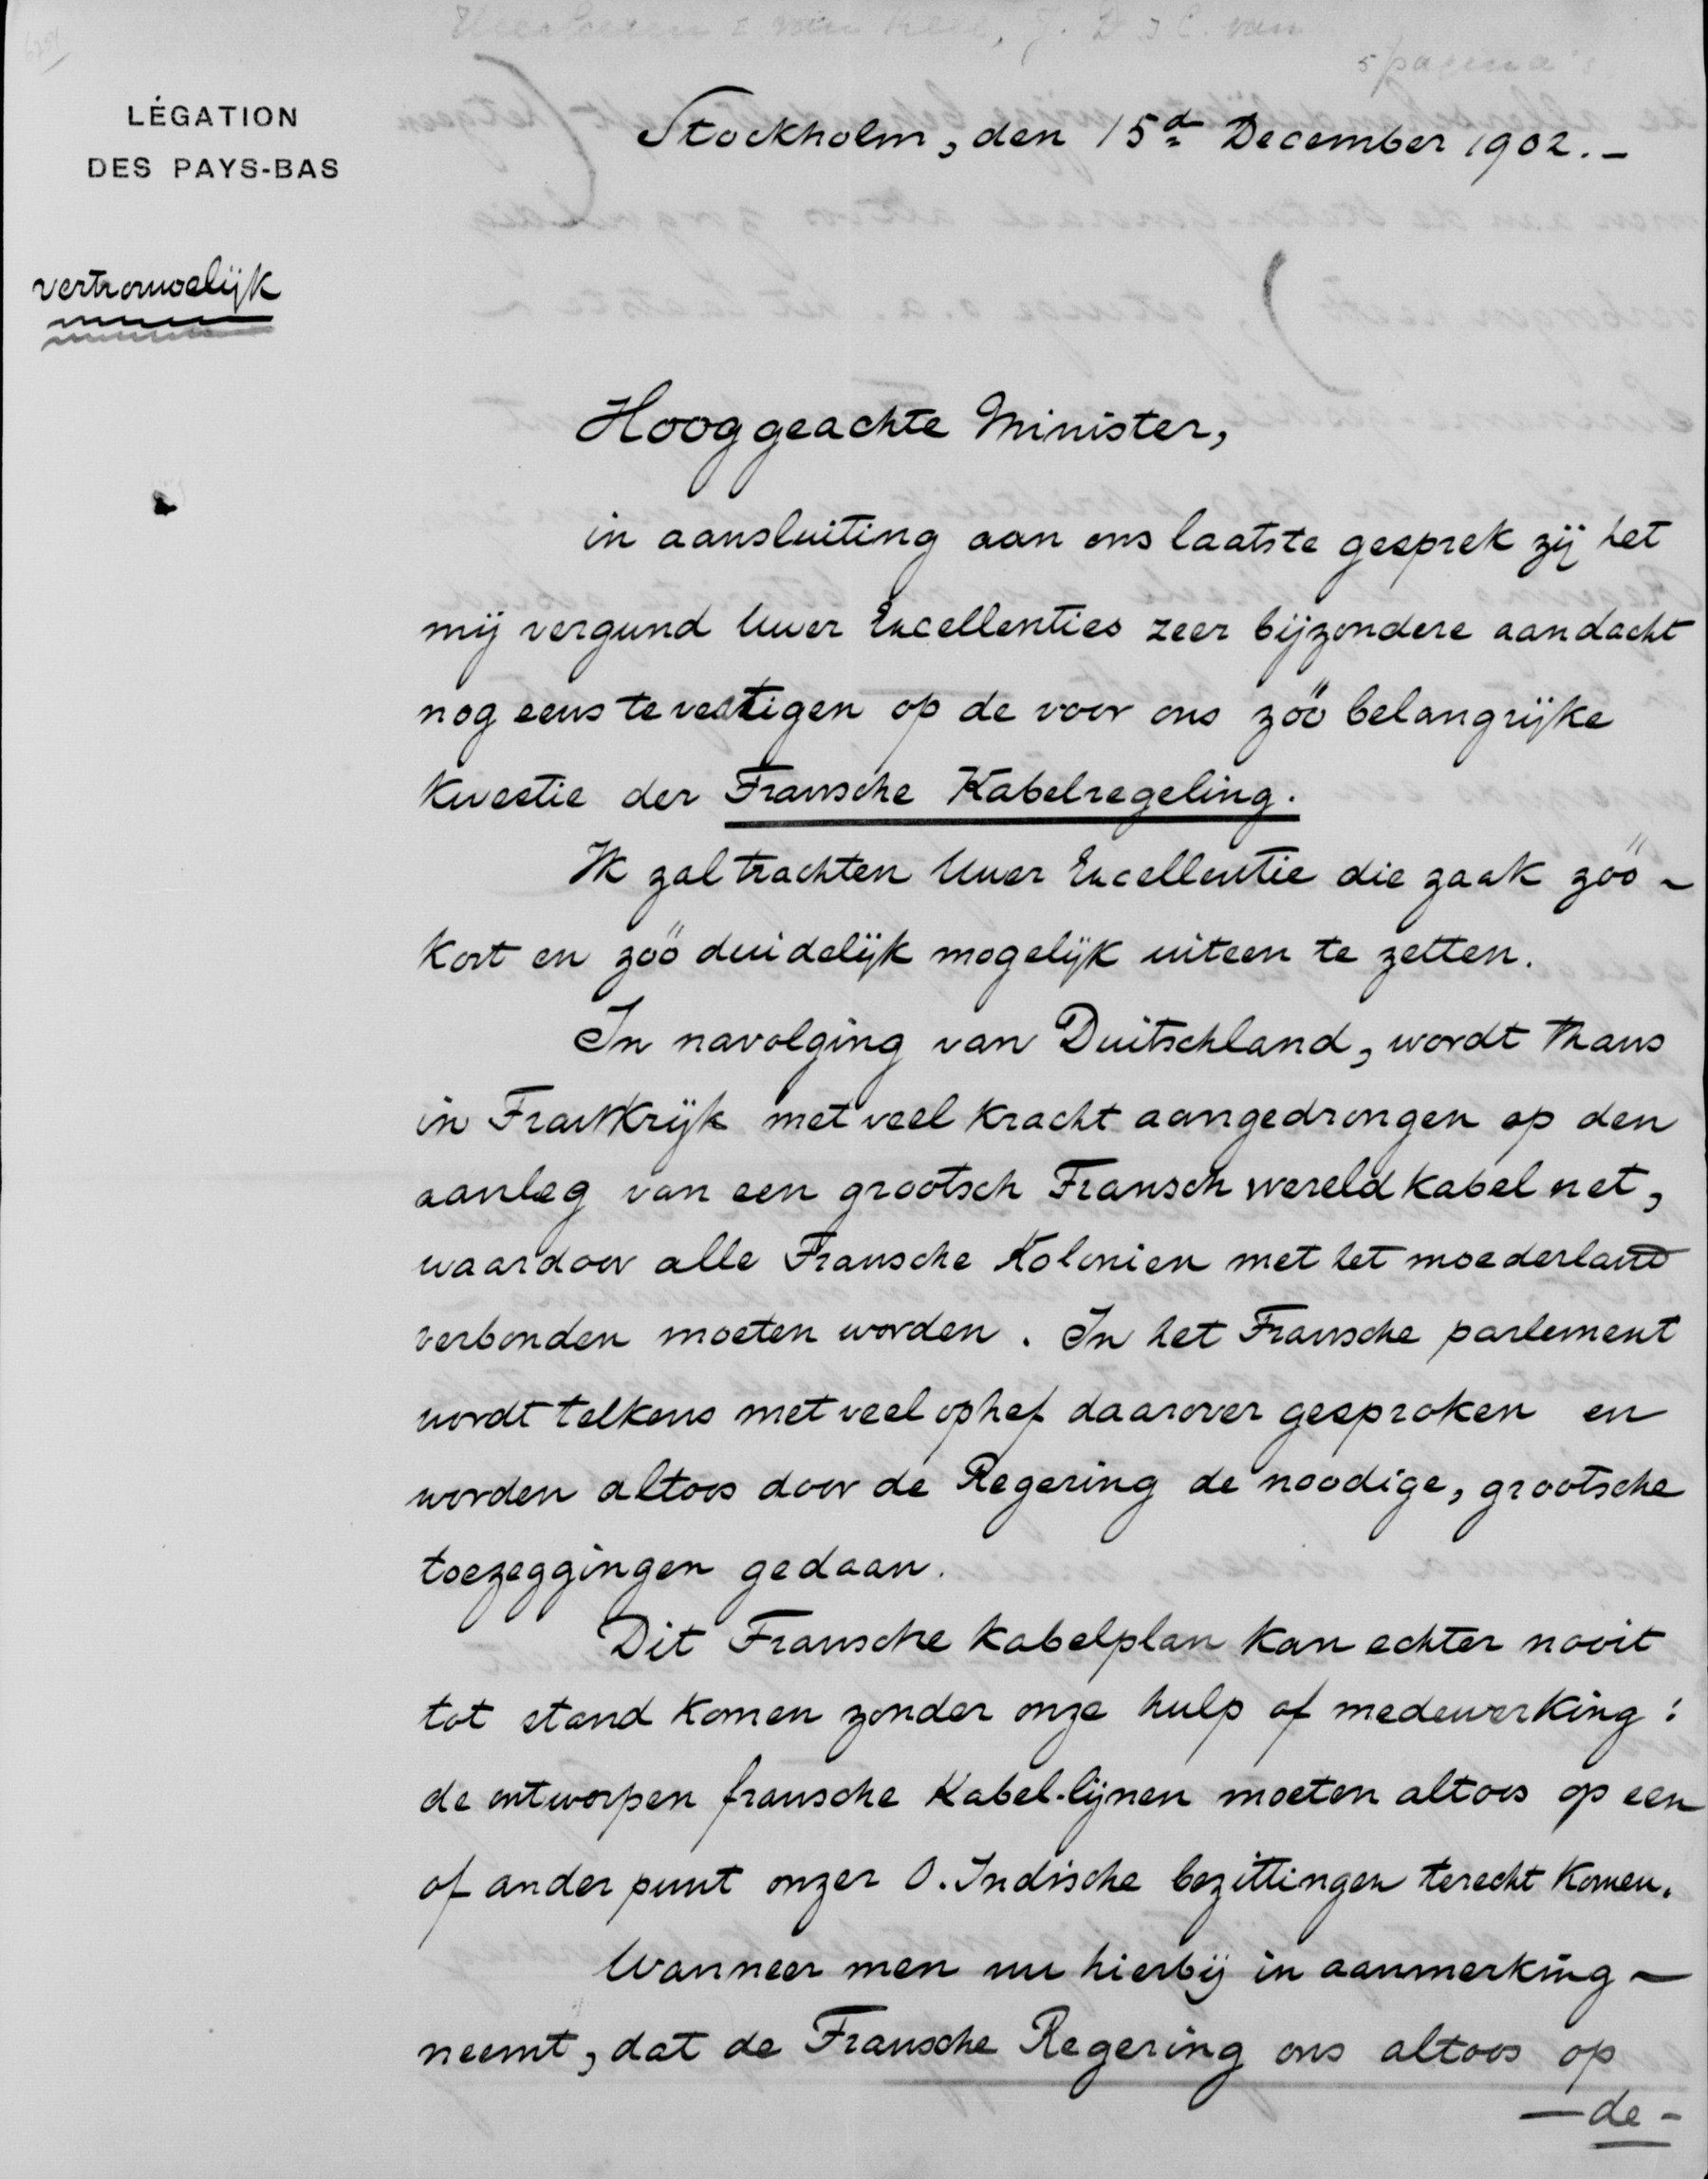 5 pagina's
LÉGATION
DES PAYS-BAS
Stockholm, den 15d December 1902.-
vertrouwelijk
Hooggeachte Minister,
in aansluiting aan ons laatste gesprek zij het
mij vergund Uwer Excellenties zeer bijzondere aandacht
nog eens te vestigen op de voor ons zóó belangrijke
kwestie der Fransche Kabelregeling.
Ik zal trachten Uwer Excellentie die zaak zóó -
kort en zóó duidelijk mogelijk uiteen te zetten.
In navolging van Duitschland, wordt thans
in Frankrijk met veel kracht aangedrongen op den
aanleg van een grootsch Fransch wereldkabelnet,
waardoor alle Fransche Kolonien met het moederland
verbonden moeten worden. In het Fransche parlement
wordt telkens met veel ophef daarover gesproken en
worden altoos door de Regering de noodige, grootsche
toezeggingen gedaan.
Dit Fransche kabelplan kan echter nooit
tot stand komen zonder onze hulp of medewerking:
de ontworpen fransche Kabel-lijnen moeten altoos op een
of ander punt onzer O. Indische bezittingen terecht komen.
Wanneer men nu hierbij in aanmerking -
neemt, dat de Fransche Regering ons altoos op
- de -